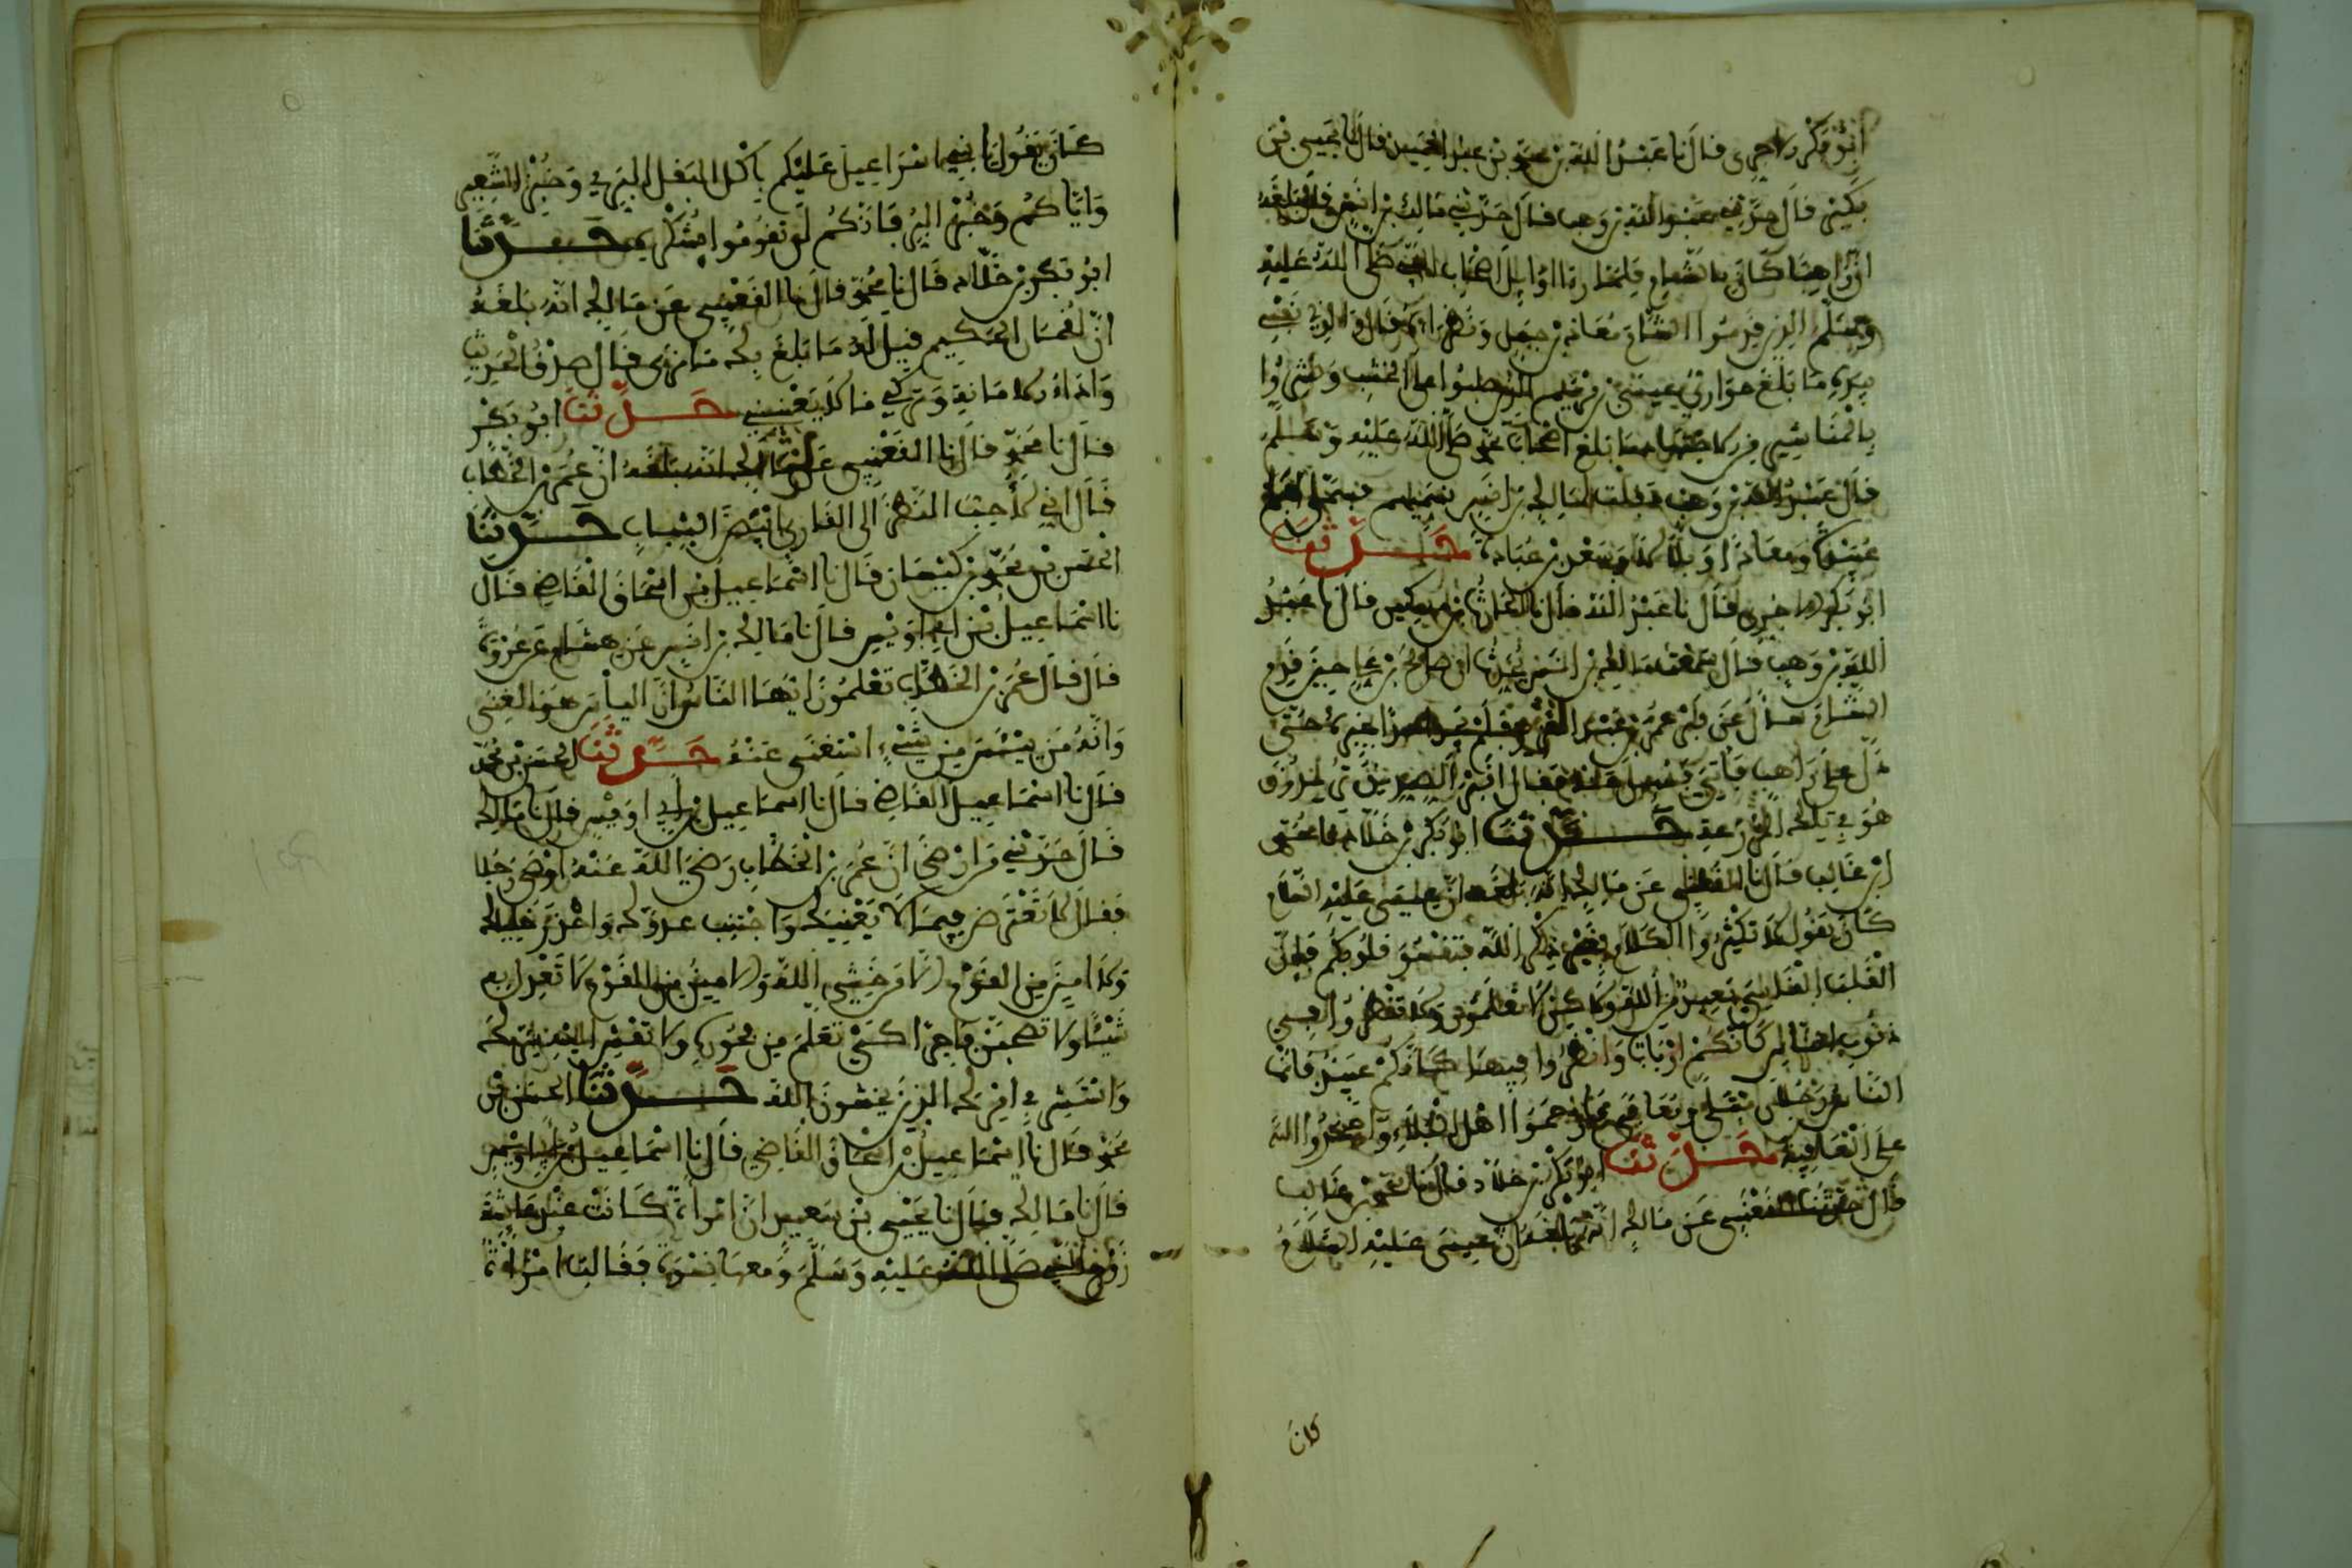 أبو بكر الاجري قال نا عبد الله بن محمد بن عبد الحميد قال نا يحيى بن
بكير قال حدثني عبد الله بن وهب قال حدثني مالك بن أنس قال بلغه
ان راهبا كان بالشام فلما رءا اوايل اصحاب النبي صلى الله عليه
وسلم الذين قدموا الشام معاذ بن جبل ونظراءه قال والذي نفسي
بيده ما بلغ حواريي عيسى بن مريم الذين صلبوا على الخشب ونشروا
بالمناشير من الاجتهاد ما بلغ اصحاب محمد صلى الله عليه وسلم
قال عبد الله بن وهب فقلت لمالك بن انس تسميهم فسمى ابا
عبيدة ومعاذا وبلالا وسعد بن عبادة حدثنا
ابو بكر الاجري قال نا عبد الله قال نا الحارث بن مسكين قال نا عبد
الله بن وهب قال سمعت مالك بن انس يحدث ان صالح بن علي حين قدم
الشام سأل عن قبر عمر بن عبد العزيز فلم يجد احدا يخبره حتى
دل على راهب فاتي فسئل عنه فقال اقبر الصديق تريدون
هو في تلك المزرعة حدثنا ابو بكر بن خلاد نا محمد
ابن غالب قال نا القعنبي عن مالك انه بلغه ان عيسى عليه السلام
كان يقول لا تكثروا الكلام بغير ذكر الله فتقسو قلوبكم فان
القلب القاسي بعيد من الله ولكن لا تعلمون ولا تنظروا في
ذنوب الناس كانكم ارباب وانظروا فيها كانكم عبيد فانما
الناس رجلان مبتلى ومعافى فارحموا اهل البلاء واحمدوا الله
على العافية حدثنا ابو بكر بن خلاد قال نا محمد بن غالب
قال حدثنا القعنبي عن مالك انه بلغه ان عيسى عليه السلام
كان
كان يقول يا بني اسراءيل عليكم باكل البقل البري وخبز الشعير
واياكم وخبز البر فانكم لن تقوموا بشكره حدثنا
ابو بكر بن خلاد قال نا محمد قال نا القعنبي عن مالك انه بلغه
ان لقمان الحكيم قيل له ما بلغ بك ما نرى قال صدق الحديث
واداء الامانة وتركي ما لا يعنيني حدثنا ابو بكر
قال نا محمد قال نا القعنبي عن مالك انه بلغه ان عمر بن الخطاب
قال اني لاحب النظر الى القاري ابيض الثياب حدثنا
الحسن بن محمد بن كيسان قال نا اسماعيل بن اسحاق القاضي قال
نا اسماعيل بن ابي اويس قال نا مالك بن انس عن هشام عن عروة
قال قال عمر بن الخطاب تعلمون ايها الناس ان الياس هو الغنى
وانه من ييئس من شيء استغنى عنه حدثنا الحسن بن محمد
قال نا اسماعيل القاضي قال نا اسماعيل بن ابي اويس قال نا مالك
قال حدثني من ارضى ان عمر بن الخطاب رضي الله عنه اوصى رجلا
فقال لا تعترض فيما لا يعنيك واجتنب عدوك واحذر خليلك
ولا امين من القوم الا من خشي الله والامين من القوم لا تعدل به
شيئا ولا تصحبن فاجرا كي تعلم من فجوره ولا تفش اليه سرك
واستشر في امرك الذين يخشون الله حدثنا الحسن بن
محمد قال نا اسماعيل بن اسحاق القاضي قال نا اسماعيل بن ابي اويس
قال نا مالك قال نا يحيى بن سعيد ان امراة كانت عند عايشة
زوج النبي صلى الله عليه وسلم ومعها نسوة فقالت امراة